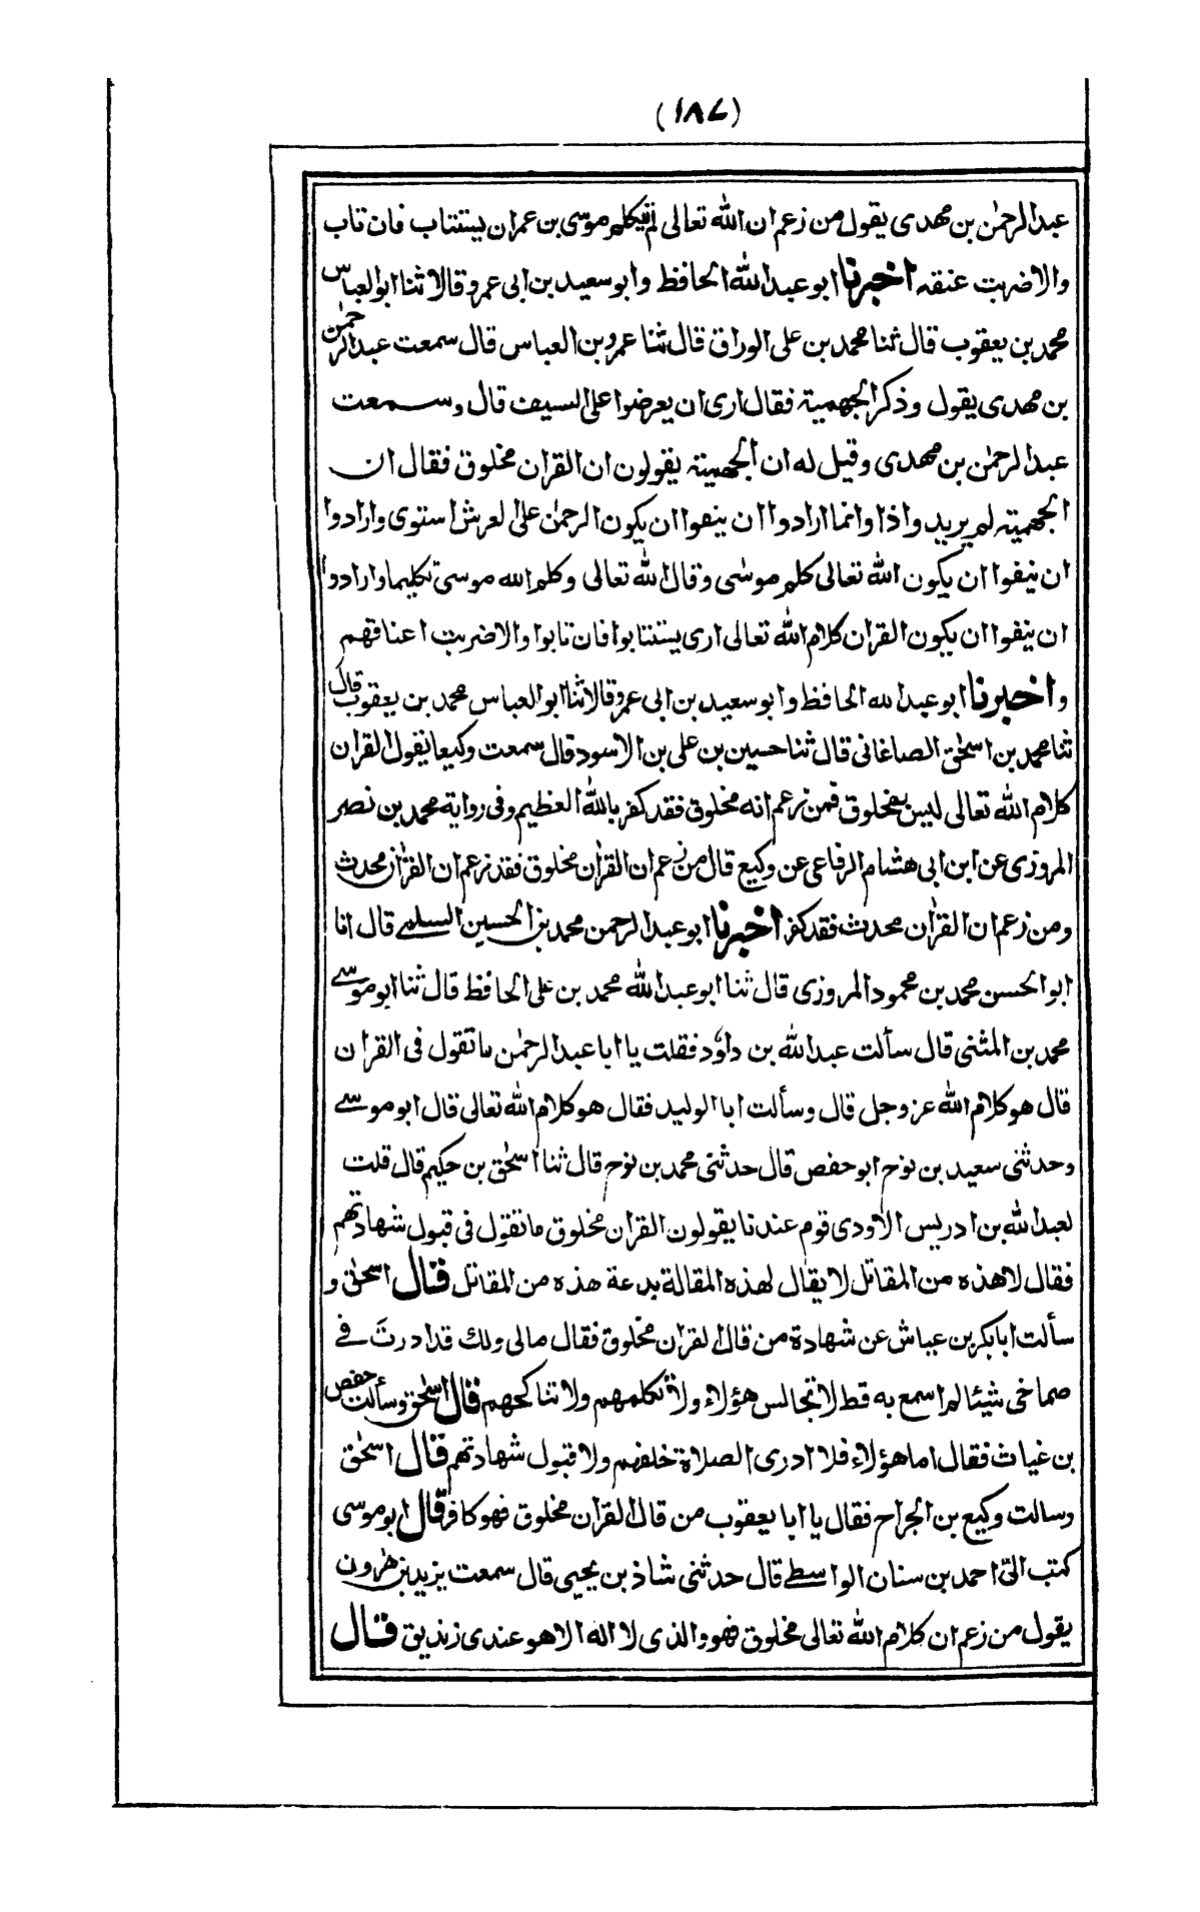 (١٨٧)
عبدالرحمٰن بن مهدى يقول من زعم ان الله تعالى لم يكلم موسى بن عمران يستتاب فان تاب
والا ضربت عنقه اخبرنا ابو عبد الله الحافظ وابو سعيد بن ابى عمرو قالا ثنا ابو العباس
محمد بن يعقوب قال ثنا محمد بن على الوراق قال ثنا عمرو بن العباس قال سمعت عبدالرحمٰن
بن مهدى يقول وذكر الجهمية فقال ارى ان يعرضوا على السيف قال وسمعت
عبدالرحمٰن بن مهدى وقيل له ان الجهمية يقولون ان القران مخلوق فقال ان
الجهمية لم يريدوا ذا وانما ارادوا ان ينفوا ان يكون الرحمٰن على العرش استوى وارادوا
ان ينفوا ان يكون الله تعالى كلم موسٰى وقال الله تعالى وكلم الله موسىٰ تكليما وارادوا
ان ينفوا ان يكون القران كلام الله تعالى ارى يستتابوا فان تابوا والا ضربت اعناقهم
و اخبرنا ابو عبد الله الحافظ وابو سعيد بن ابى عمرو قالا ثنا ابو العباس محمد بن يعقوب قال
ثنا محمد بن اسحٰق الصاغانى قال ثنا حسين بن على بن الاسود قال سمعت وكيعا يقول القران
كلام الله تعالى ليس بمخلوق فمن زعم انه مخلوق فقد كفر بالله العظيم وفى رواية محمد بن نصر
المروزى عن ابن ابى هشام الرفاعى عن وكيع قال من زعم ان القراٰن مخلوق فقد زعم ان القراٰن محدث
ومن زعم ان القراٰن محدث فقد كفر اخبرنا ابو عبدالرحمن محمد بن الحسين السلمے قال انا
ابو الحسن محمد بن محمود المروزى قال ثنا ابو عبد الله محمد بن على الحافظ قال ثنا ابو موسے
محمد بن المثنى قال سألت عبد الله بن داؤد فقلت يا ابا عبدالرحمٰن ما تقول فى القران
قال هو كلام الله عز وجل قال وسألت ابا الوليد فقال هو كلام الله تعالى قال ابو موسے
وحدثنى سعيد بن نوح ابو حفص قال حدثنى محمد بن نوح قال ثنا اسحٰق بن حكيم قال قلت
لعبد الله بن ادريس الاودى قوم عندنا يقولون القران مخلوق ما تقول فى قبول شهادتهم
فقال لا هذه من المقاتل لا يقال لهذه المقالة بدعة هذه من المقاتل قال اسحٰق و
سألت ابا بكر بن عياش عن شهادة من قال القران مخلوق فقال مالى ولك قد ادرت فے
صماخى شيئا لم اسمع به قط لا تجالس هؤلاء ولا تكلمهم ولا تناكحهم قال اسحٰق وسألت حفص
بن غياث فقال اما هؤلاء فلا ادرى الصلاة خلفهم ولا قبول شهادتهم قال اسحٰق
وسالت وكيع بن الجراح فقال يا ابا يعقوب من قال القران مخلوق فهو كافر قال ابو موسى
كتب الىّ احمد بن سنان الواسطے قال حدثنى شاذ بن يحيى قال سمعت يزيد بن هٰرون
يقول من زعم ان كلام الله تعالى مخلوق فهو والذى لا اله الا هو عندى زنديق قال